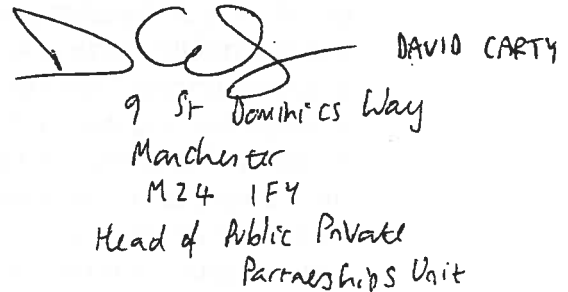 DAVID CARTY
9 St Dominics Way
Manchester
M24 1FY
Head of Public Private
Partnerships Unit